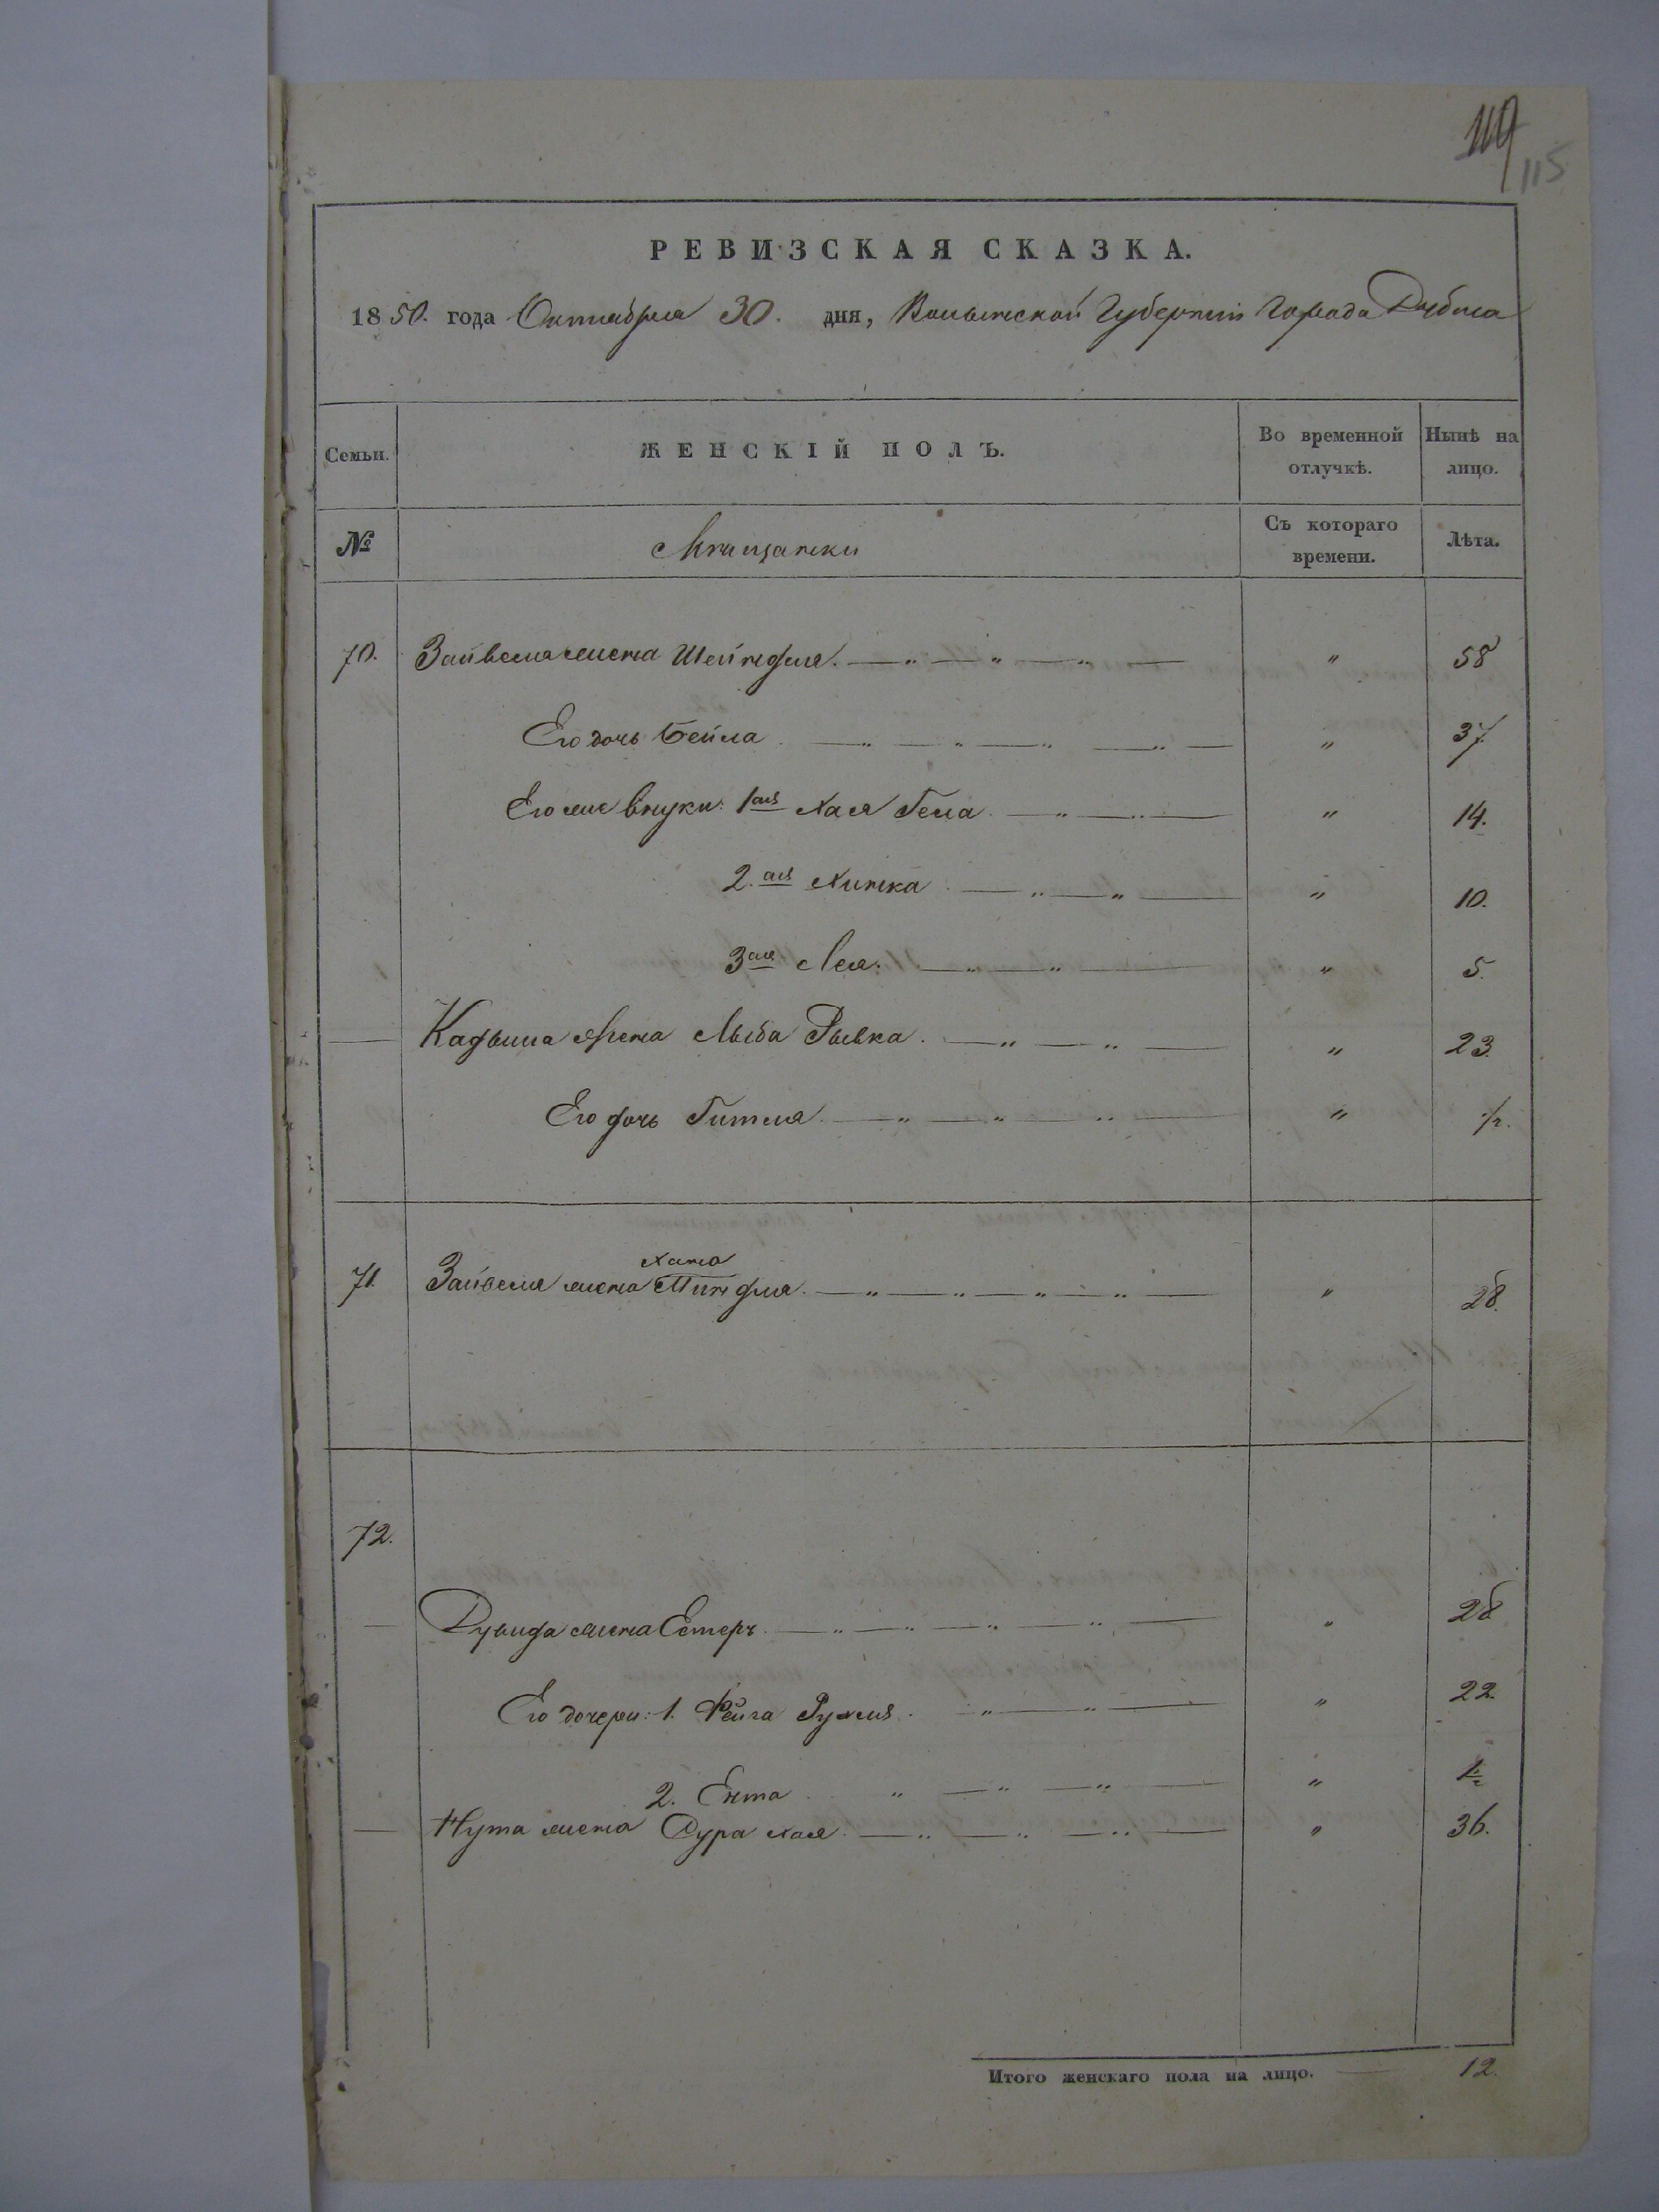 119
115
РЕВИЗСКАЯ СКАЗКА.
1850. года Октября 30. дня, Волынской Губернии Города Дубна
Семьи. ЖЕНСКІЙ ПОЛЪ. Во временной отлучкѣ. Нынѣ на лицо.
№ Мѣщанки Съ котораго времени. Лѣта.
70. Зайвеля жена Шейндля. " 58
Его дочь Бейла " 37.
Его же внуки: 1ая Хая Гена " 14.
2.ая Хинка " 10.
3ая Лея. " 5.
жена Лыба Рывка. " 23.
Его дочь Гитля " 1/2.
Хана
71. Зайвеля жена Миндля. " 28.
72.
Дувида жена Естеръ. " 28
Его дочери: 1. Фейга Рухля. " 22.
2. Ента " 1/2
Нута жена Сура Хая. " 36.
Итого женскаго пола на лицо. 12.